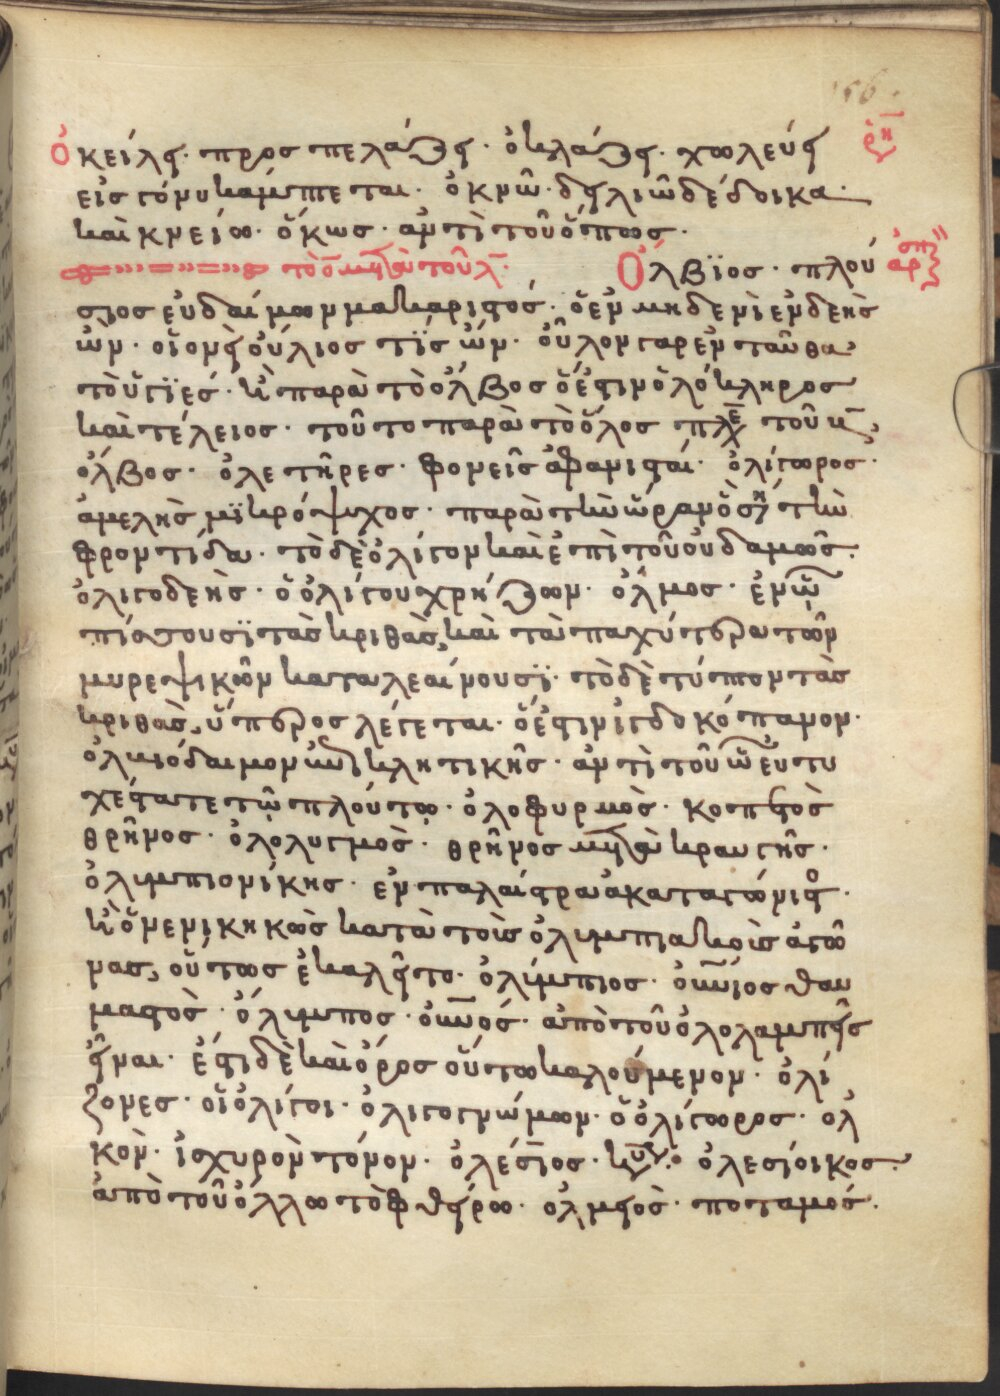 156
ὀκείλει· προσπελάζει· ὀκλάζει· χωλεύει
εἰς γόνυ κάμπτεται· ὀκνῶ· δειλιῶ δέδοικα·
καὶ κνείω· ὅκως· ἀντὶ τοῦ ὅπως·
τὸ ο μετὰ τοῦ λ· Ὄλβϊος· πλού
σιος εὐδαίμων μακαριστός· ὁ ἐν μηδενὶ ἐνδεὴς
ὤν· οἱονεὶ οὔλιος τῒς ὤν· οὖλον γαρ ἐνταῦθα
τὸ ὑγϊές· καὶ παρὰ τὸ ὄλβος ὅ ἐστιν ὁλόκληρος
καὶ τέλειος· τοῦτο παρὰ τὸ ὅλος
ὄλβος· ὀλετῆρες· φονεῖς ἀφανισταί· ὀλίγωρος·
ἀμελὴς μϊκρόψυχος· παρὰ τὴν ὤραν ὃ σημαίνει τὴν
φροντίδα· τὸ δὲ ὀλίγον καὶ ἐπὶ τοῦ οὐδαμῶς·
ὀλιγοδεὴς· ὁ ὀλίγου χρῄζων· ὄλμος· ἐν ᾧ
πίσσουσϊ τὰς κριθὰς, καὶ τὰ παχύτερα τῶν
μυρεψικῶν καταλεαίνουσϊ· τὸ δὲ τύπτον τὰς
κριθὰς, ὕπερος λέγεται· ὅ ἐστιν ἰγδοκόπανον·
ὀλβιόδαιμον ἀντὶ κλητικῆς· ἀντὶ τοῦ ὦ εὐτυ
χέστατε τῷ πλούτῳ· ὀλοφυρμὸς· κοπετὸς
θρῆνος· ὀλολυγμὸς· θρῆνος μετὰ κραυγῆς·
ὀλυμπιονίκης· ἐν παλαίστρα ἀκαταγώνιστος·
καὶ ὁ νενικηκὼς κατὰ τοὺς ὀλυμπιακοὺς ἀγῶ
νας, οὕτως ἐκαλεῖτο· ὀλύμπιος· οὐνιος θαυ
μαστὸς· ὄλυμπος· οὐνός· ἀπὸ τοῦ ὁλολαμπὴς
εἶναι· ἔστι δὲ καὶ ὄρος οὕτω καλούμενον· ὀλί
ζονες· οἱ ὀλίγοι· ὀλιγογνώμων· ὁ ὀλίγωρος· ὁλ
κὸν· ἰσχυρὸν τόνον· ὀλέσιος· ὀλεσίοικος·
ἀπὸ τοῦ ὄλλω τὸ φθείρω· ὀλμειὸς· ποταμός·